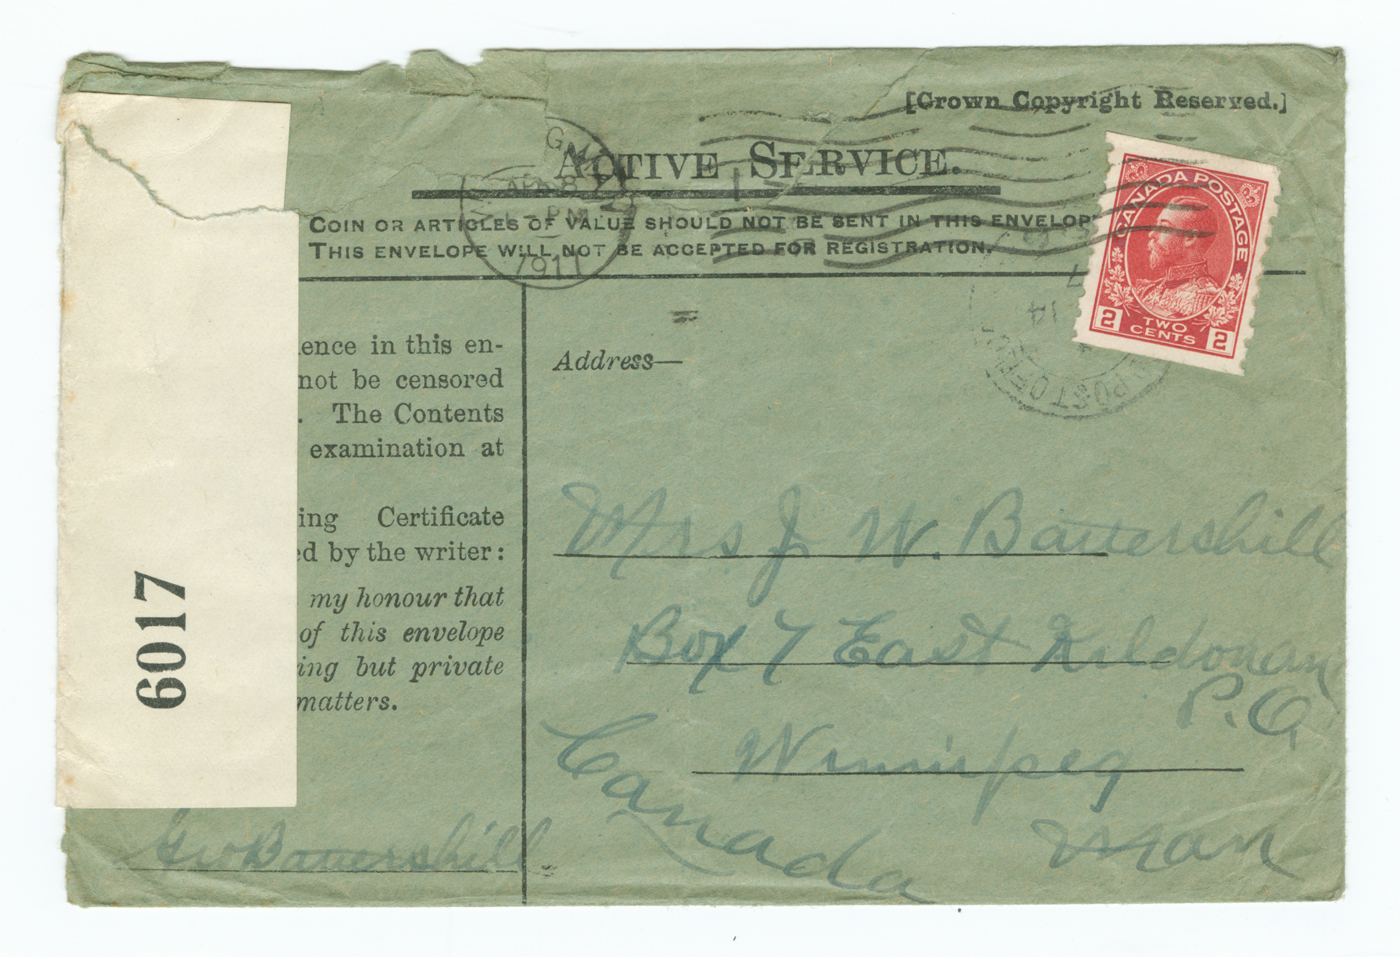 [Crown Copyright Reserved.]
ACTIVE SERVICE.
COIN OR ARTICLES OF VALUE SHOULD NOT BE SENT IN THIS ENVELOP
THIS ENVELOPE WILL NOT BE ACCEPTED FOR REGISTRATION.
CANADA POSTAGE
2 TWO CENTS 2
APR 8
PM
1917
14
POST OFFICE
ience in this en-
not be censored
. The Contents
examination at
ing Certificate
ed by the writer:
my honour that
of this envelope
ing but private
matters.
6017
Geo Battershill
Address—
Mrs J. W. Battershill
Box 7 East Kildonan
P.O.
Winnipeg
Man
Canada